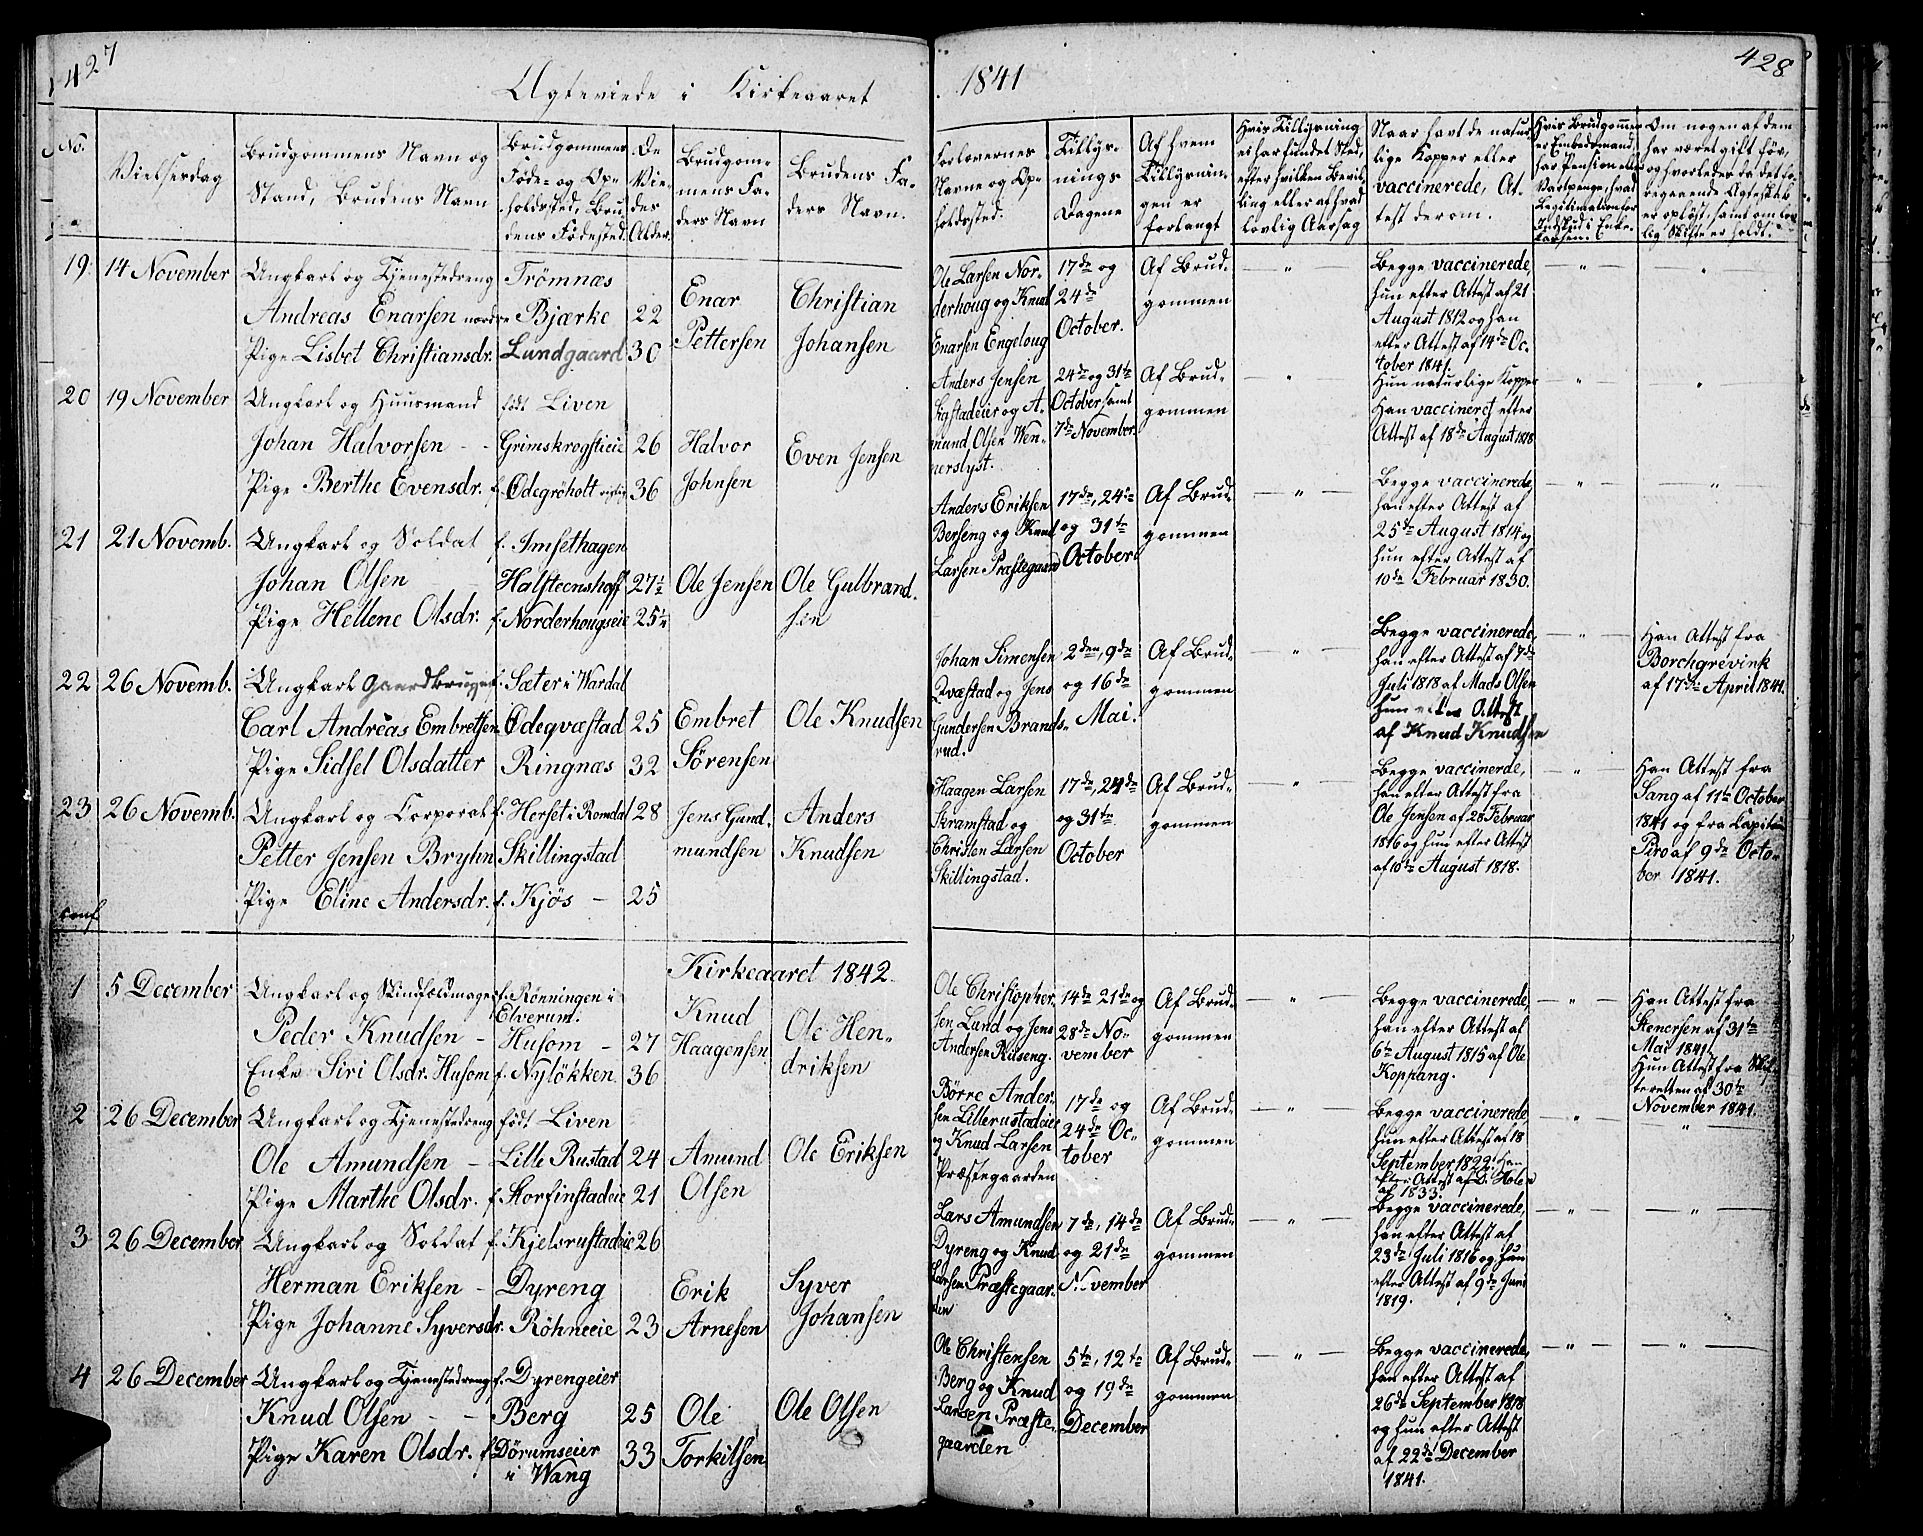 427
Ugteviede i Kirkeaaret
No.
Vielsesdag
Brudgommens Navn og
Stand, Brudens Navn
Brudgommens
Føde- og Op-
holdssted, Bru-
dens Fødested.
De
Vie-
des
Alder.
Brudgom-
mens Fa-
ders Navn
Brudens Fa-
ders Navn.
19. 14 November Ungkarl og Tjenestedreng Trömnæs
Andreas Enarsen nordre Bjærke 22 Enar Christian
Pige Lisbet Christiansdr. Lundgaard 30 Pettersen Johansen
20 19 November Ungkarl og Huusmand födt Liven
Johan Halvorsen - - Grimskrogstieie 26 Halvor Even Jensen
Pige Berthe Evensdr. f. Ödegröholt 36 Johnsen
21 21 Novemb. Ungkarl og Soldat f. Imsethagen
Johan Olsen Halsteenshoff 27½ Ole Jensen Ole Gulbrand-
Pige Hellene Olsdr. f. Norderhougseie 25¼ sen
22 26 Novemb. Ungkarl Gaardbruger f. Sæter i Wardal
Carl Andreas Embretsen Ödeqvæstad 25 Embret Ole Knudsen
Pige Sidsel Olsdatter Ringnæs 32 Sörensen
23 26 Novemb. Ungkarl og Corporal f. Herset i Romdal 28 Jens Gund- Anders
Petter Jensen Bryhn Skillingstad mundsen Knudsen
Pige Eline Andersdr. f. Kjös - 25
conf
Kirkeaaret 1842.
1 5 December Ungkarl og Skindfeldmager f. Rönningen i
Elverum.
Peder Knudsen - Husom - 27 Knud Ole Hen-
Enke Siri Olsdr. Husom f. Nylökken 36 Haagensen driksen
2 26 December Ungkarl og Tjenestedreng födt Liven
Ole Amundsen - Lille Rustad 24 Amund Ole Eriksen
Pige Marthe Olsdr. f. Korfinstadeie 21 Olsen
3. 26 December Ungkarl og Soldat f. Kjelsrustadeie 26
Herman Eriksen - Dyreng Erik Syver
Pige Johanne Syversdr. Röhneeie 23 Arnesen Johansen
4 26 December Ungkarl og Tjenestedreng f. Dyrengeier
Knud Olsen - - Berg 25 Ole Ole Olsen
Pige Karen Olsdr. f. Dörumseier 33 Torkilsen
i Wang
1841
428
Forlovernes
Navne og Op-
holdssted.
Tillys-
nings
Dagene
Af hvem
Tillysnin-
gen er
forlangt
Hvis Tillysning
ei har fundet Sted,
efter hvilken Bevil-
ling eller af hvad
lovlig Aarsag
Naar havt de natur-
lige Kopper eller
vaccinerede, At-
test derom.
Hvis Brudgommen
er Embedsmand,
har Pension eller
Vartpenge, hvad
Legitimation for
Indskud i Enke-
kassen.
Om nogen af dem
har været gift før,
og hvorledes da det fo-
regaaende Ægteskab
er opløst, samt om lov-
lig Skifte er holdt.
Ole Larsen Nor-
derhoug og Knud
Enarsen Engeloug
17de og
24de
October.
Af Brud-
gommen
Begge vaccinerede,
hun efter Attest af 21
August 1812 og han
efter Attest af 14de Oc-
tober 1841.
Anders Jensen
Kaftadeier og A-
mund Olsen Wen-
nerslyst.
24de og 31te
October samt
7de November.
Af Brud-
gommen
Hun naturlige Kopper
Han vaccineret efter
Attest af 18de August 1818
Anders Eriksen
Berseng og Knud
Larsen Præstegaard
17de, 24de
og 31te
October.
Af Brud-
gommen
Begge vaccinerede,
han efter Attest af
25de August 1814 og
hun efter Attest af
10de Februar 1830.
Johan Simensen
Qvæstad og Jens
Gundersen Brands-
rud.
2den, 9de
og 16de
Mai.
Af Brud-
gommen
Begge vaccinerede,
han efter Attest af 7de
Juli 1818 af Mads Olsen
hun efter Attest
af Knud Knudsen
Han Attest fra
Borchgrevink
af 17de April 1841.
Haagen Larsen
Skramstad og
Christen Larsen
Skillingstad.
17de, 24de
og 31te
October
Af Brud-
gommen
Begge vaccinerde,
han efter Attest fra
Ole Jensen af 28 Februar
1816 og hun efter Attest
af 10de August 1818.
Han Attest fra
Sang af 11te October
1841 og fra Capitain
Piro af 9de Octo-
ber 1841.
Ole Christopher-
sen Lund og Jens
Andersen Ruseng.
14de 21de og
28de No-
vember
Af Brud-
gommen
Begge vaccinerede,
han efter Attest af
6te August 1815 af Ole
Koppang.
Han Attest fra
Stenersen af 31te
Mai 1841
Hun Attest fra Skif-
teretten af 30te
November 1841.
Börre Ander-
sen Lillerustadeie
og Knud Larsen
Præstegaarden
17de og
24de Oc-
tober
Af Brud-
gommen
Begge vaccinerede,
hun efter Attest af 18
September 1822. Han
efter Attest af D. Holen
af 1833.
Lars Amundsen
Dyreng og Knud
Larsen Præstegaar-
den
7de, 14de
og 21de
November
Af Brud-
gommen
Begge vaccinerede,
han efter Attest af
23de Juli 1816 og hun
efter Attest af 9de Juni
1819.
Ole Christensen
Berg og Knud
Larsen Præste-
gaarden
5te, 12te
og 19de
December
Af Brud-
gommen
Begge vaccinerede,
han efter Attest af
26de September 1818
og hun efter Attest
af 22de December
1841.